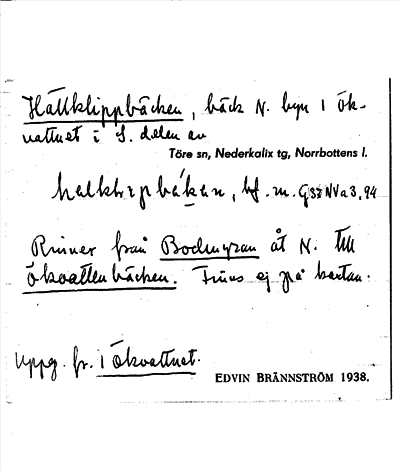 Hällklippbäcken, bäck N. byn 1 Ök-
vattnet i S. delen av
Töre sn, Nederkalix tg, Norrbottens l.
bf. m.
Rinner från Bodmyran åt N. till
Ökvattenbäcken. Finns ej på kartan.
Uppg. fr. 1 Ökvattnet.
EDVIN BRÄNNSTRÖM 1938.